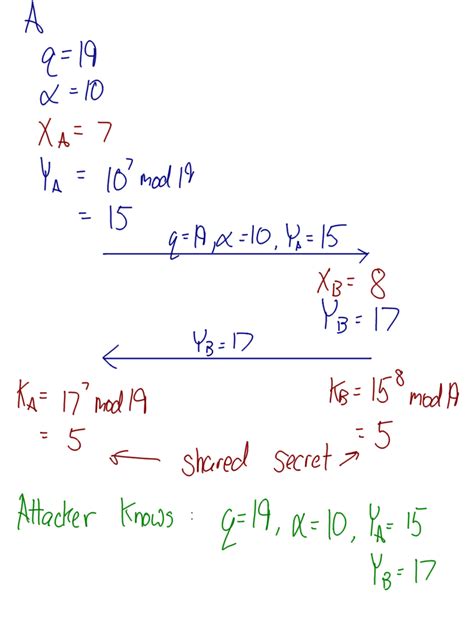 A
q=19
α=10
X_A = 7
Y_A = 10^7 mod 19
= 15
q=19, α=10, Y_A=15
X_B = 8
Y_B = 17
Y_B=17
K_A = 17^7 mod 19
= 5
K_B = 15^8 mod 19
= 5
← shared secret →
Attacker Knows : q=19, α=10, Y_A = 15
Y_B = 17